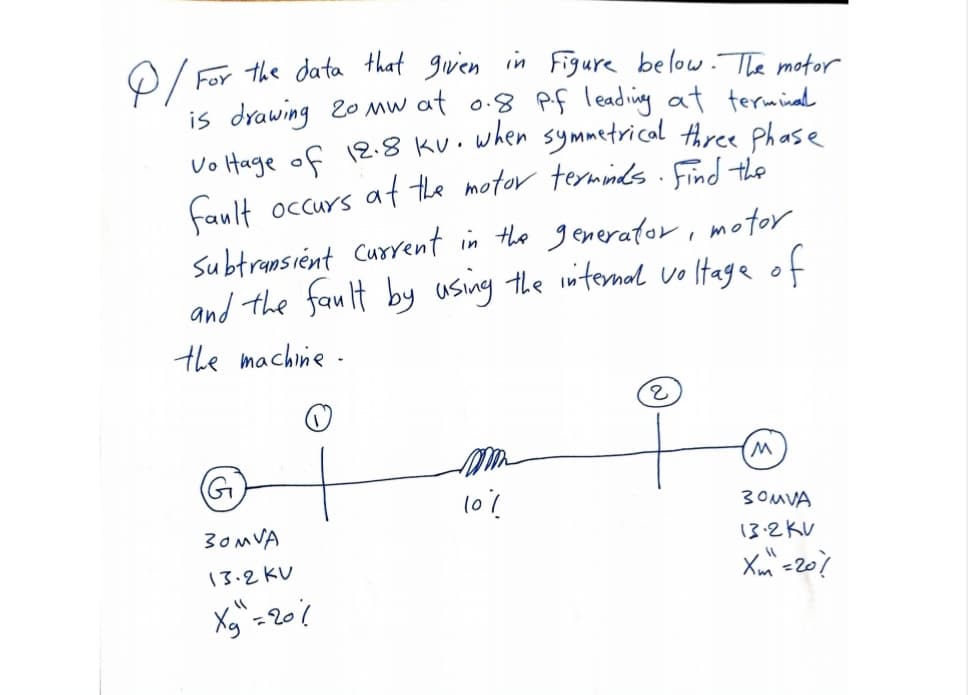 Q/ For the data that given in Figure below. The motor
is drawing 20 MW at 0.8 P.f leading at terminal
Voltage of 12.8 KV. when symmetrical three phase
fault occurs at the motor terminds. Find the
subtransient current in the generator, motor
and the fault by using the internal voltage of
the machine.
1
2
G
M
10%
30MVA
13.2 KV
Xg" = 20%
30MVA
13.2 KV
Xm" = 20%